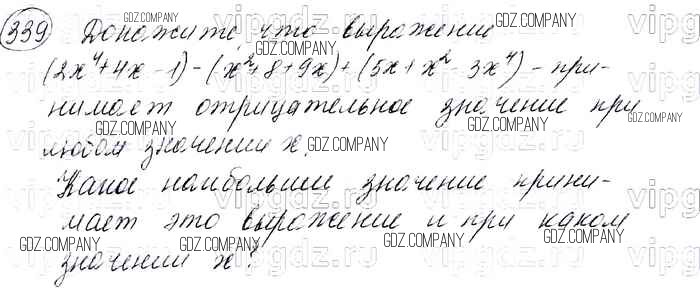 339 Докажите, что выражение
(2x⁴+4x-1)-(x²+8+9x)+(5x+x²-3x⁴) - при-
нимает отрицательное значение при
любом значении x.
Какое наибольшее значение прини-
мает это выражение и при каком
значении x?